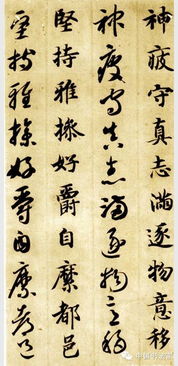 神疲守真志满逐物意移
神疲守真志满逐物意移
堅持雅操好爵自縻都邑
堅持雅操好爵自縻都邑